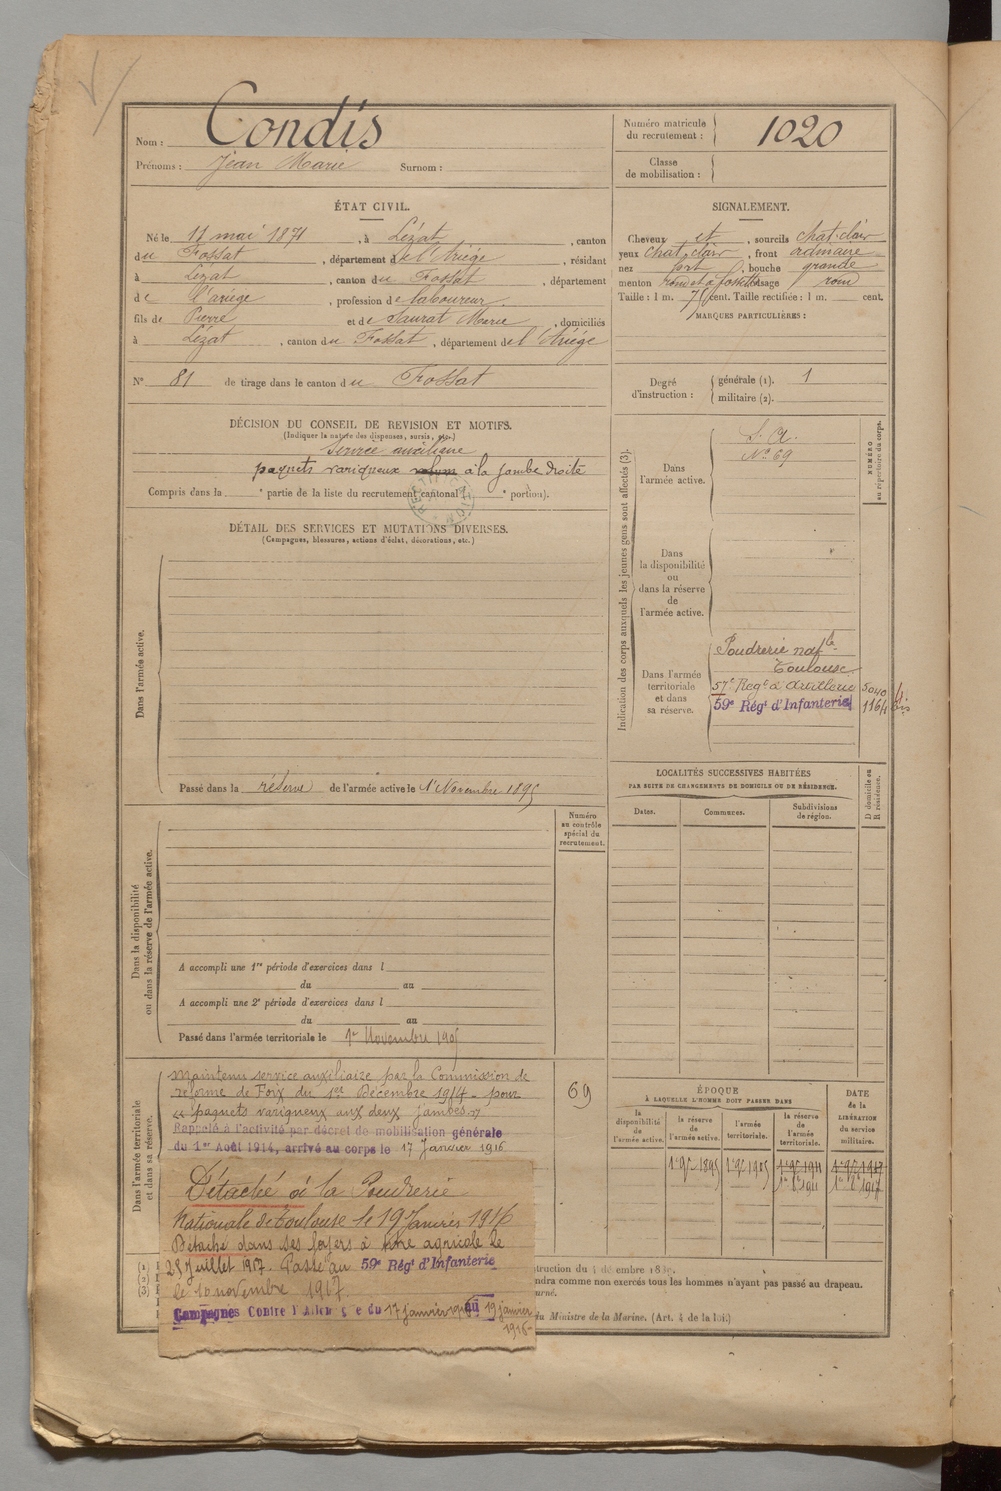 Nom : Condis
Prénoms : Jean Marie Surnom :
Numéro matricule
du recrutement : 1020
Classe
de mobilisation :
ÉTAT CIVIL.
Né le 11 mai 1871, à Lézat, canton
du Fossat, département de l'Ariége, résidant
à Lezat, canton du Fossat, département
de l'ariége, profession de laboureur
fils de Pierre et de Saurat Marie, domiciliés
à Lézat, canton du Fossat, département de l'Ariége
N° 81 de tirage dans le canton du Fossat
SIGNALEMENT.
Cheveux et, sourcils chat. clair
yeux chat. clair, front ordinaire
nez fort, bouche grande
menton rond et à fossette visage rond
Taille : 1 m. cent. Taille rectifiée : 1 m. cent.
MARQUES PARTICULIÈRES :
Degré
d'instruction :
générale (1). 1
militaire (2).
DÉCISION DU CONSEIL DE REVISION ET MOTIFS.
(Indiquer la nature des dispenses, sursis, etc.)
Service auxiliaire
paquets variqueux à la jambe droite
Compris dans la e partie de la liste du recrutement cantonal ( e portion).
DÉTAIL DES SERVICES ET MUTATIONS DIVERSES.
(Campagnes, blessures, actions d'éclat, décorations, etc.)
Dans l'armée active.
Passé dans la réserve de l'armée active le 1er Novembre 1895
Indication des corps auxquels les jeunes gens sont affectés (3).
NUMÉRO
au répertoire du corps.
Dans
l'armée active.
S. A.
N° 69
Dans
la disponibilité
ou
dans la réserve
de
l'armée active.
Dans l'armée
territoriale
et dans
sa réserve.
Poudrerie nale
Toulouse
57e Regt d'Artillerie 5040
59e Régt d'Infanterie 1164 bis
LOCALITÉS SUCCESSIVES HABITÉES
PAR SUITE DE CHANGEMENTS DE DOMICILE OU DE RÉSIDENCE.
D domicile ou
R résidence.
Dates. Communes. Subdivisions
de région.
Dans la disponibilité
ou dans la réserve de l'armée active.
Numéro
au contrôle
spécial du
recrutement.
A accompli une 1re période d'exercices dans l
du au
A accompli une 2e période d'exercices dans l
du au
Passé dans l'armée territoriale le 1er Novembre 1905
Dans l'armée territoriale
et dans sa réserve.
Maintenu service auxiliaire par la Commission de
réforme de Foix du 1er Décembre 1914 - pour
"paquets variqueux aux deux jambes"
Rappelé à l'activité par décret de mobilisation générale
du 1er Août 1914, arrivé au corps le 17 Janvier 1916
69
Détaché à la Poudrerie
Nationale de Toulouse le 19 Janvier 1916
Détaché dans ses foyers à titre agricole le
25 Juillet 1917. Passé au 59e Régt d'Infanterie
le 10 novembre 1917.
Campagnes Contre l'Allemagne du 17 janvier 1916 au 19 janvier
1916-
ÉPOQUE
À LAQUELLE L'HOMME DOIT PASSER DANS
DATE
de la
LIBÉRATION
du service
militaire.
la
disponibilité
de
l'armée active.
la réserve
de
l'armée active.
l'armée
territoriale.
la réserve
de
l'armée
territoriale.
1er 9bre 1895 1er 9bre 1905 1er 9bre 1911 1er 9bre 1917
1er 8bre 1911 1er 8bre 1917
(1)
(2)
(3)
truction du 4 décembre 1889.
ndra comme non exercés tous les hommes n'ayant pas passé au drapeau.
urné.
du Ministre de la Marine. (Art. 4 de la loi.)